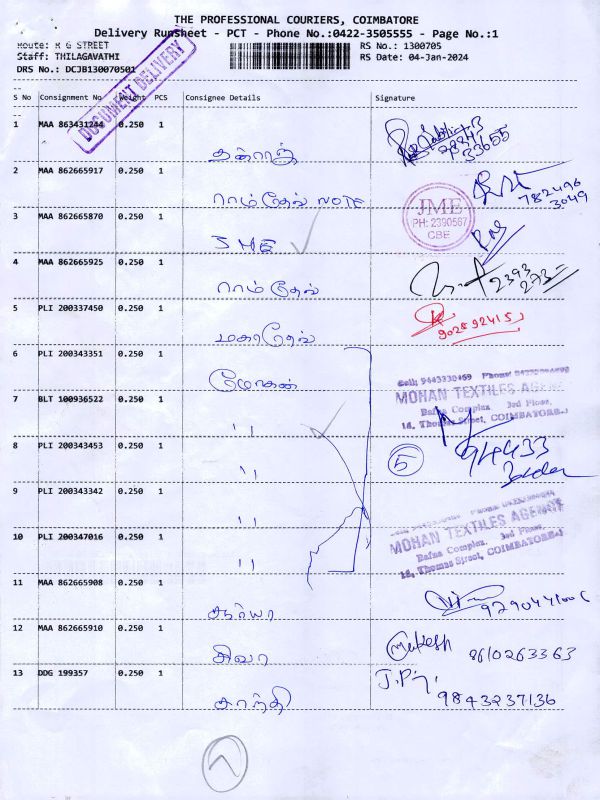 THE PROFESSIONAL COURIERS, COIMBATORE
Delivery RunSheet - PCT - Phone No.:0422-3505555 - Page No.:1
Route: R G STREET
RS No.: 1300705
Staff: THILAGAVATHI
RS Date: 04-Jan-2024
DRS No.: DCJB130070501
DOCUMENT DELIVERY
S No Consignment No Weight PCS Consignee Details Signature
1 MAA 863431244 0.250 1
2 MAA 862665917 0.250 1 ராம்தேவ் NOTE
3 MAA 862665870 0.250 1 JME
JME
PH: 2390567
CBE
4 MAA 862665925 0.250 1 ராம்தேவ்
5 PLI 200337450 0.250 1 மகாதேவ்
9025924151
6 PLI 200343351 0.250 1 மோகன்
MOHAN TEXTILES AGENCY
Bafna Complex, 3rd Floor,
18, Thomas Street, COIMBATORE-1
7 BLT 100936522 0.250 1 ''
8 PLI 200343453 0.250 1 ''
5
9 PLI 200343342 0.250 1 ''
MOHAN TEXTILES AGENCY
Bafna Complex, 3rd Floor,
18, Thomas Street, COIMBATORE-1
10 PLI 200347016 0.250 1 ''
11 MAA 862665908 0.250 1 சூர்யா
12 MAA 862665910 0.250 1 சிவா Mukesh 8610263363
13 DDG 199357 0.250 1 சாந்தி J.P. 9843237136